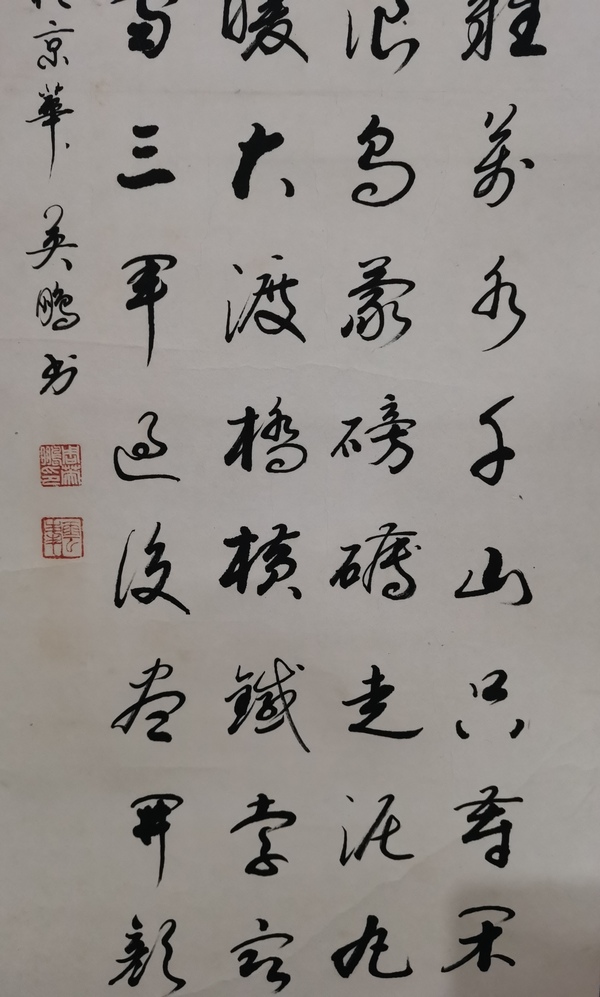 難萬水千山只等閑
浪烏蒙磅礴走泥丸
暖大渡橋橫鐵索寒
雪三軍過後盡開顏
於京華英鵬书